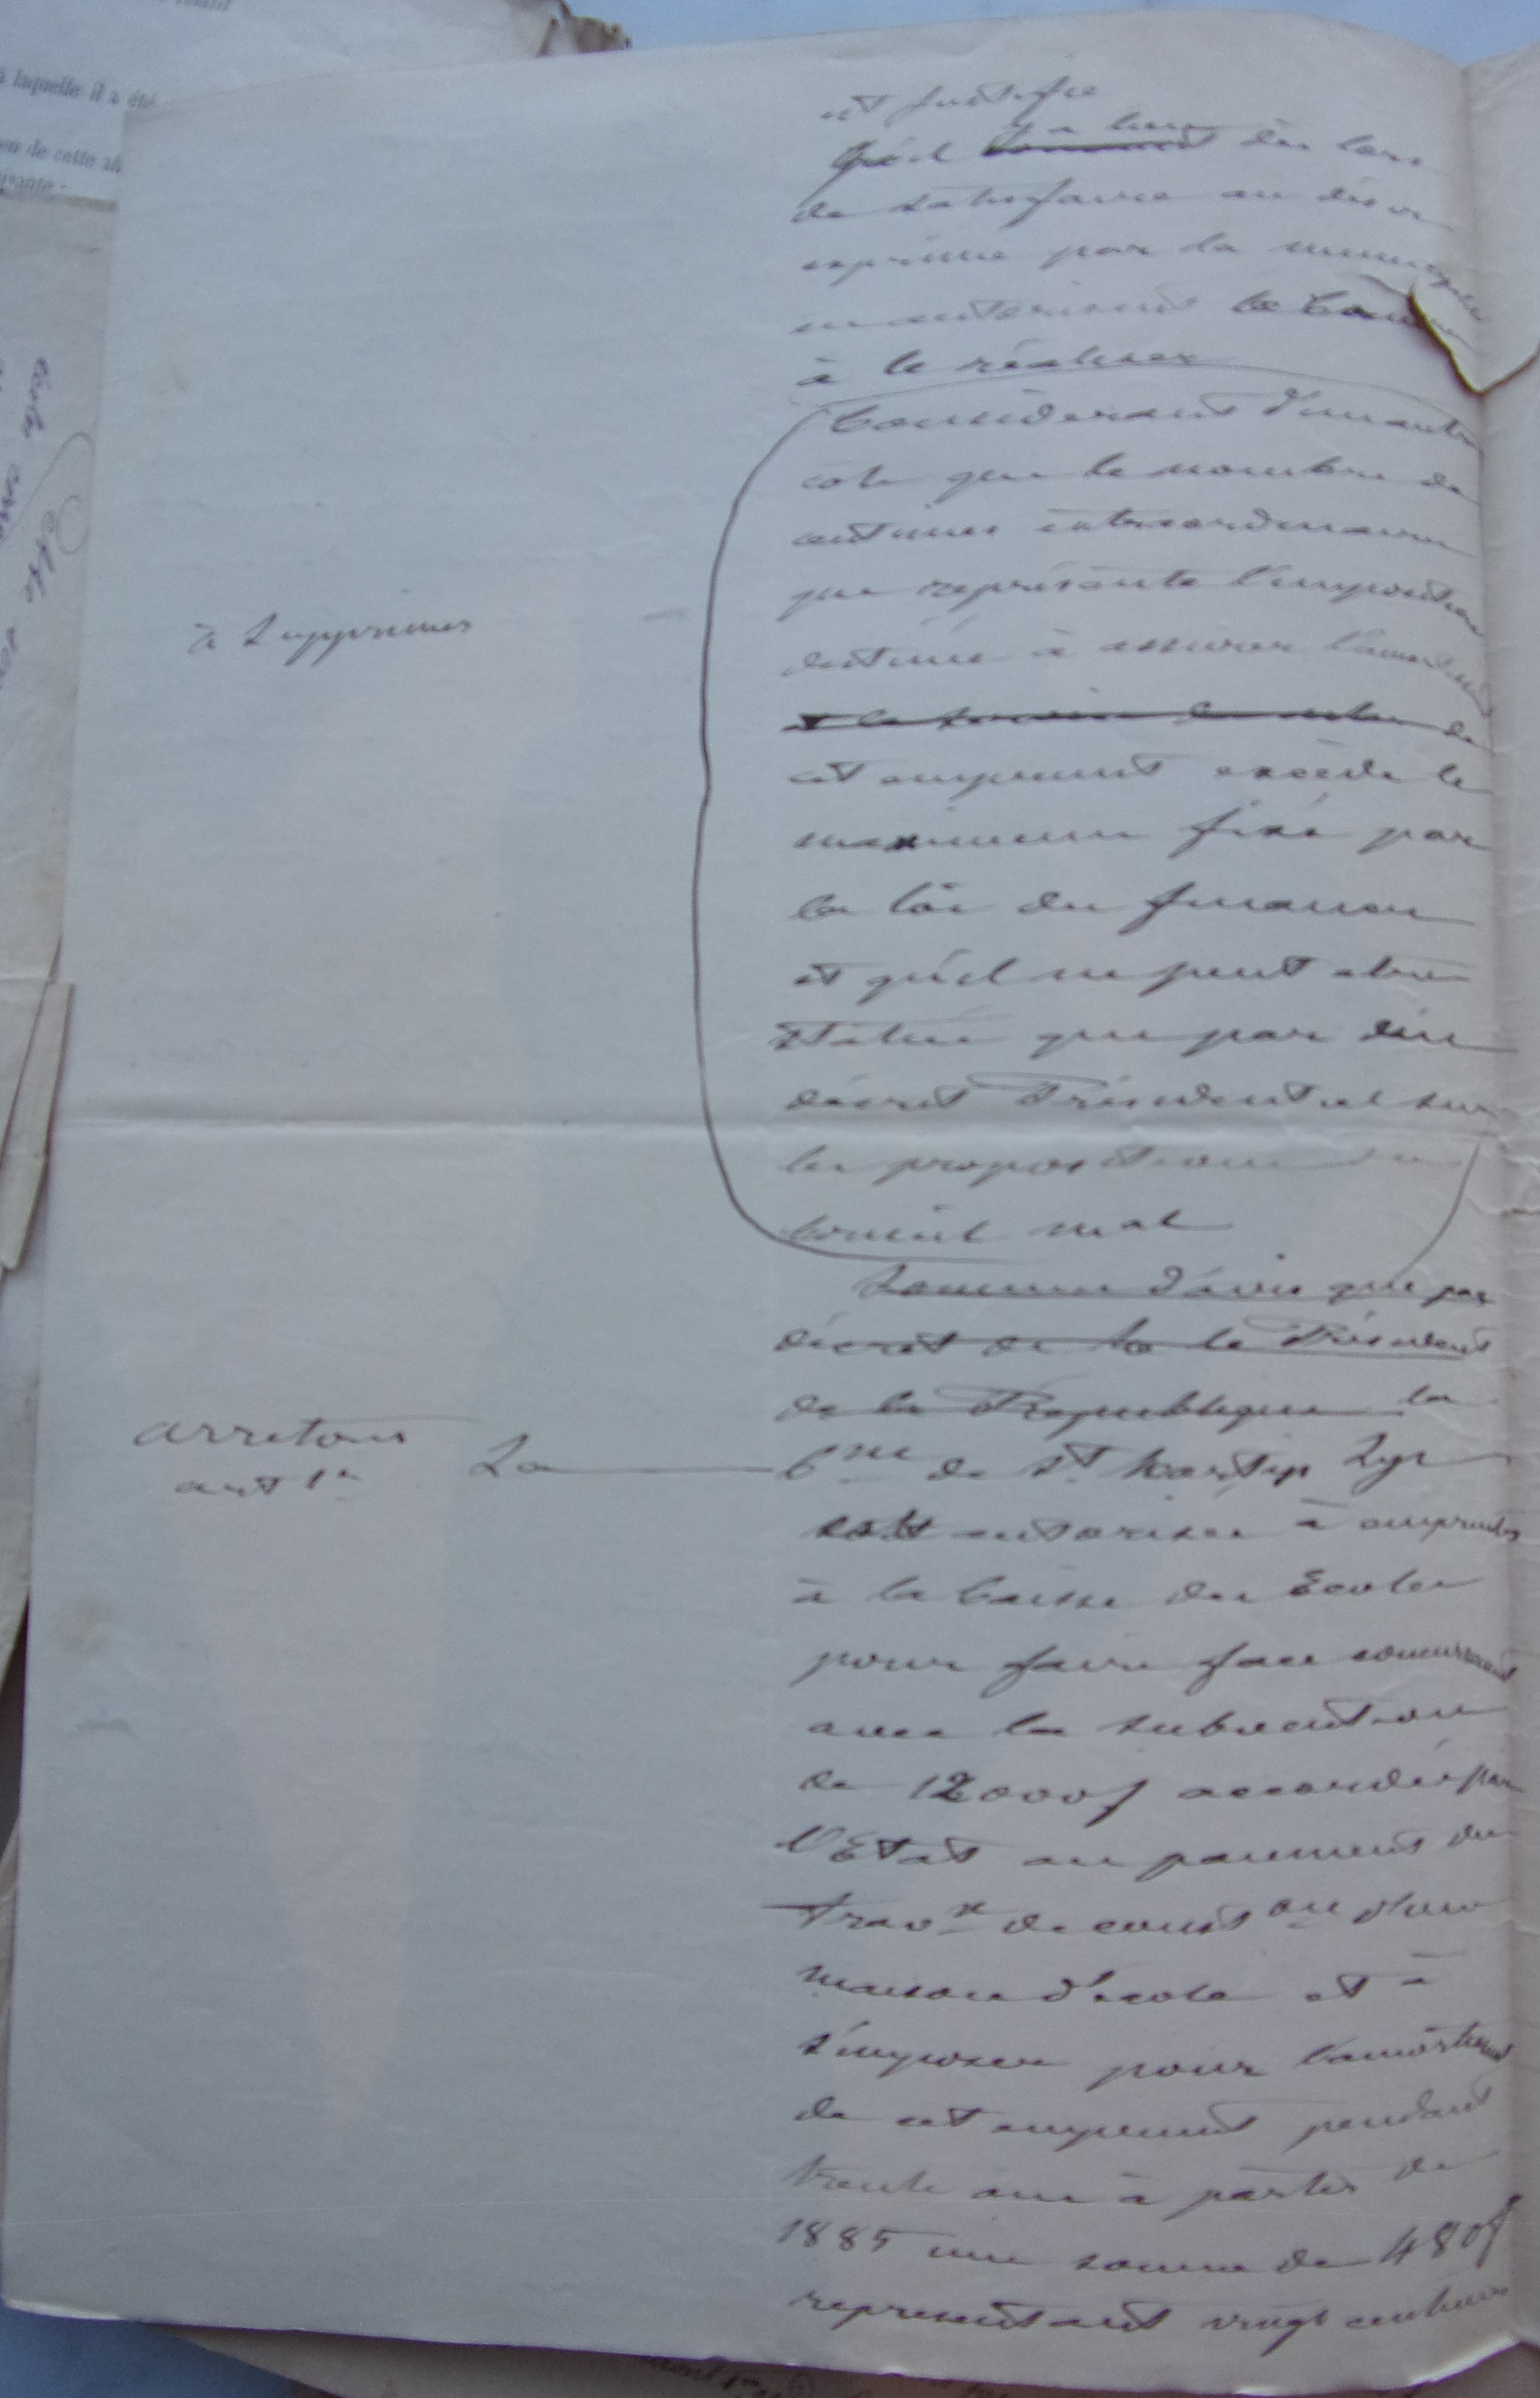 relatif
à laquelle il a été
en de cette
uvante :
est justifié
qu'il y a lieu dès lors
de satisfaire au désir
exprimé par la municipalité
en autorisant la Commune
à le réaliser
Considérant d'un autre
coté que le nombre de
centimes extraordinaires
que représente l'imposition
destinée à assurer l'amortissement
à supprimer
et le service des intérêts de
cet emprunt excède le
maximum fixé par
la loi de finances
et qu'il ne peut etre
statué que par un
décret Présidentiel sur
les propositions du
Conseil mal
Sommes d'avis que par
décret de la le Président
de la République la
arretons
art 1er
La Cne de St Martin Lys
est autorisée à emprunter
à la Caisse des Ecoles
pour faire face concurremment
avec la subvention
de 12000f accordée par
l'Etat au paiement des
travx de conston d'une
maison d'école et à
s'imposer pour l'amortissement
de cet emprunt pendant
trente ans à partir de
1885 une somme de 480f
représentant vingt centimes